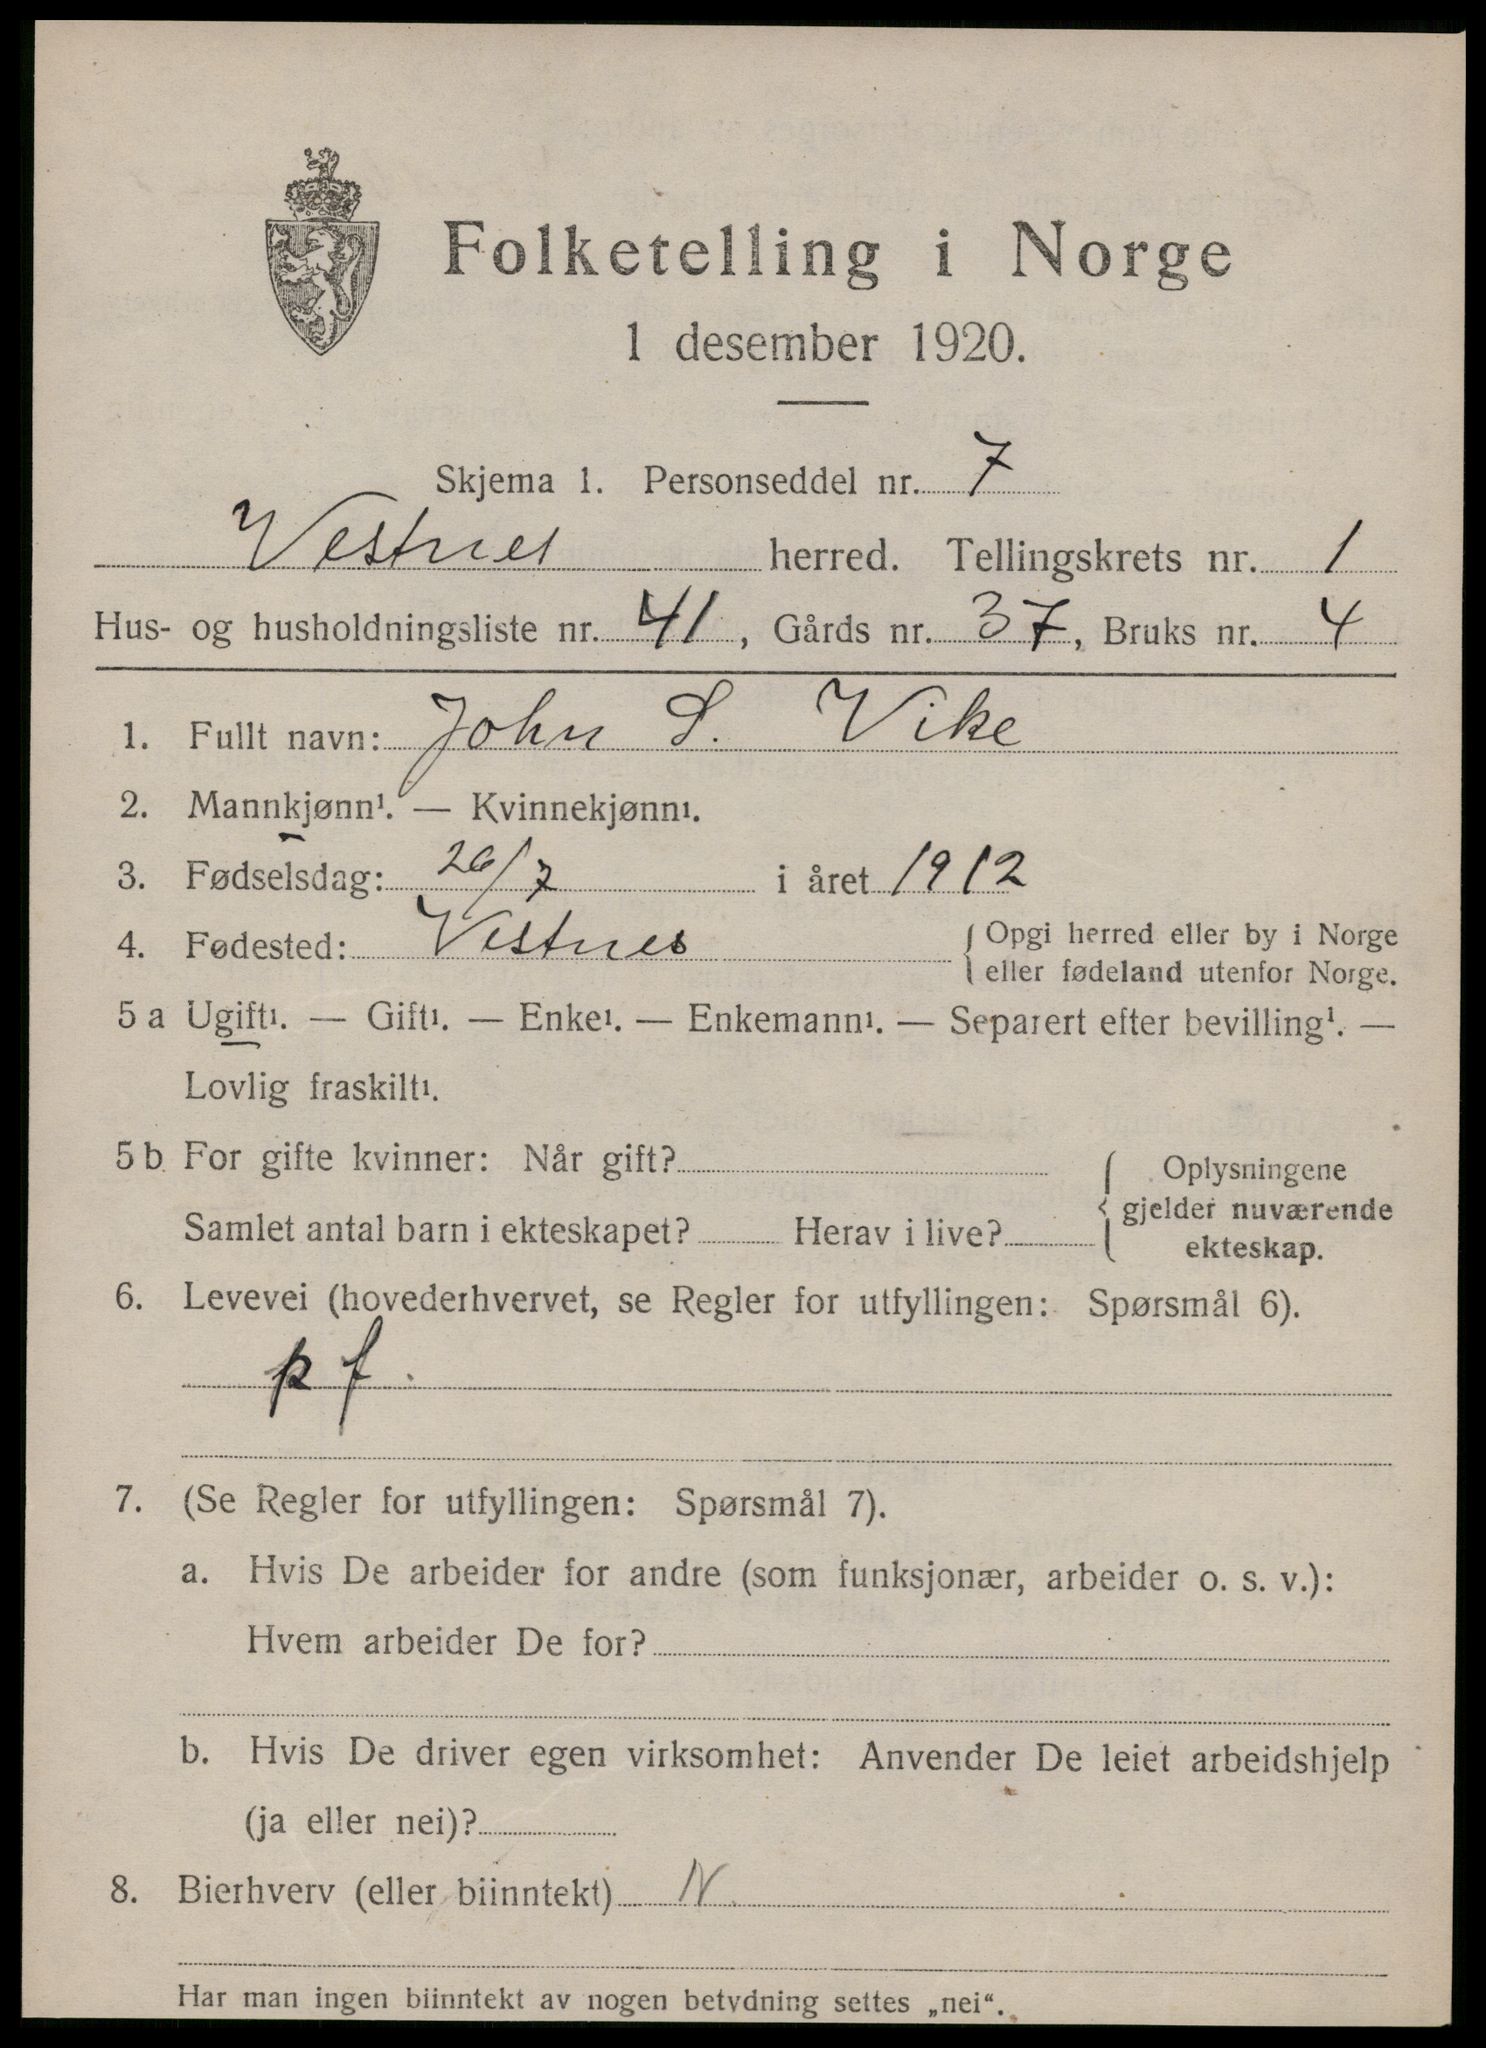 Folketelling i Norge
1 desember 1920.
Skjema 1. Personseddel nr. 7
Vestnes herred. Tellingskrets nr. 1
Hus- og husholdningsliste nr. 41, Gårds nr. 37, Bruks nr. 4
1. Fullt navn: John S. Vike
2. Mannkjønn¹. — Kvinnekjønn¹.
3. Fødselsdag: 26/7 i året 1912
4. Fødested: Vestnes { Opgi herred eller by i Norge
eller fødeland utenfor Norge.
5 a Ugift¹. — Gift¹. — Enke¹. — Enkemann¹. — Separert efter bevilling¹. —
Lovlig fraskilt¹.
5 b For gifte kvinner: Når gift? { Oplysningene
gjelder nuværende
ekteskap.
Samlet antal barn i ekteskapet? Herav i live?
6. Levevei (hovederhvervet, se Regler for utfyllingen: Spørsmål 6).
p f.
7. (Se Regler for utfyllingen: Spørsmål 7).
a. Hvis De arbeider for andre (som funksjonær, arbeider o. s. v.):
Hvem arbeider De for?
b. Hvis De driver egen virksomhet: Anvender De leiet arbeidshjelp
(ja eller nei)?
8. Bierhverv (eller biinntekt) N.
Har man ingen biinntekt av nogen betydning settes „nei“.